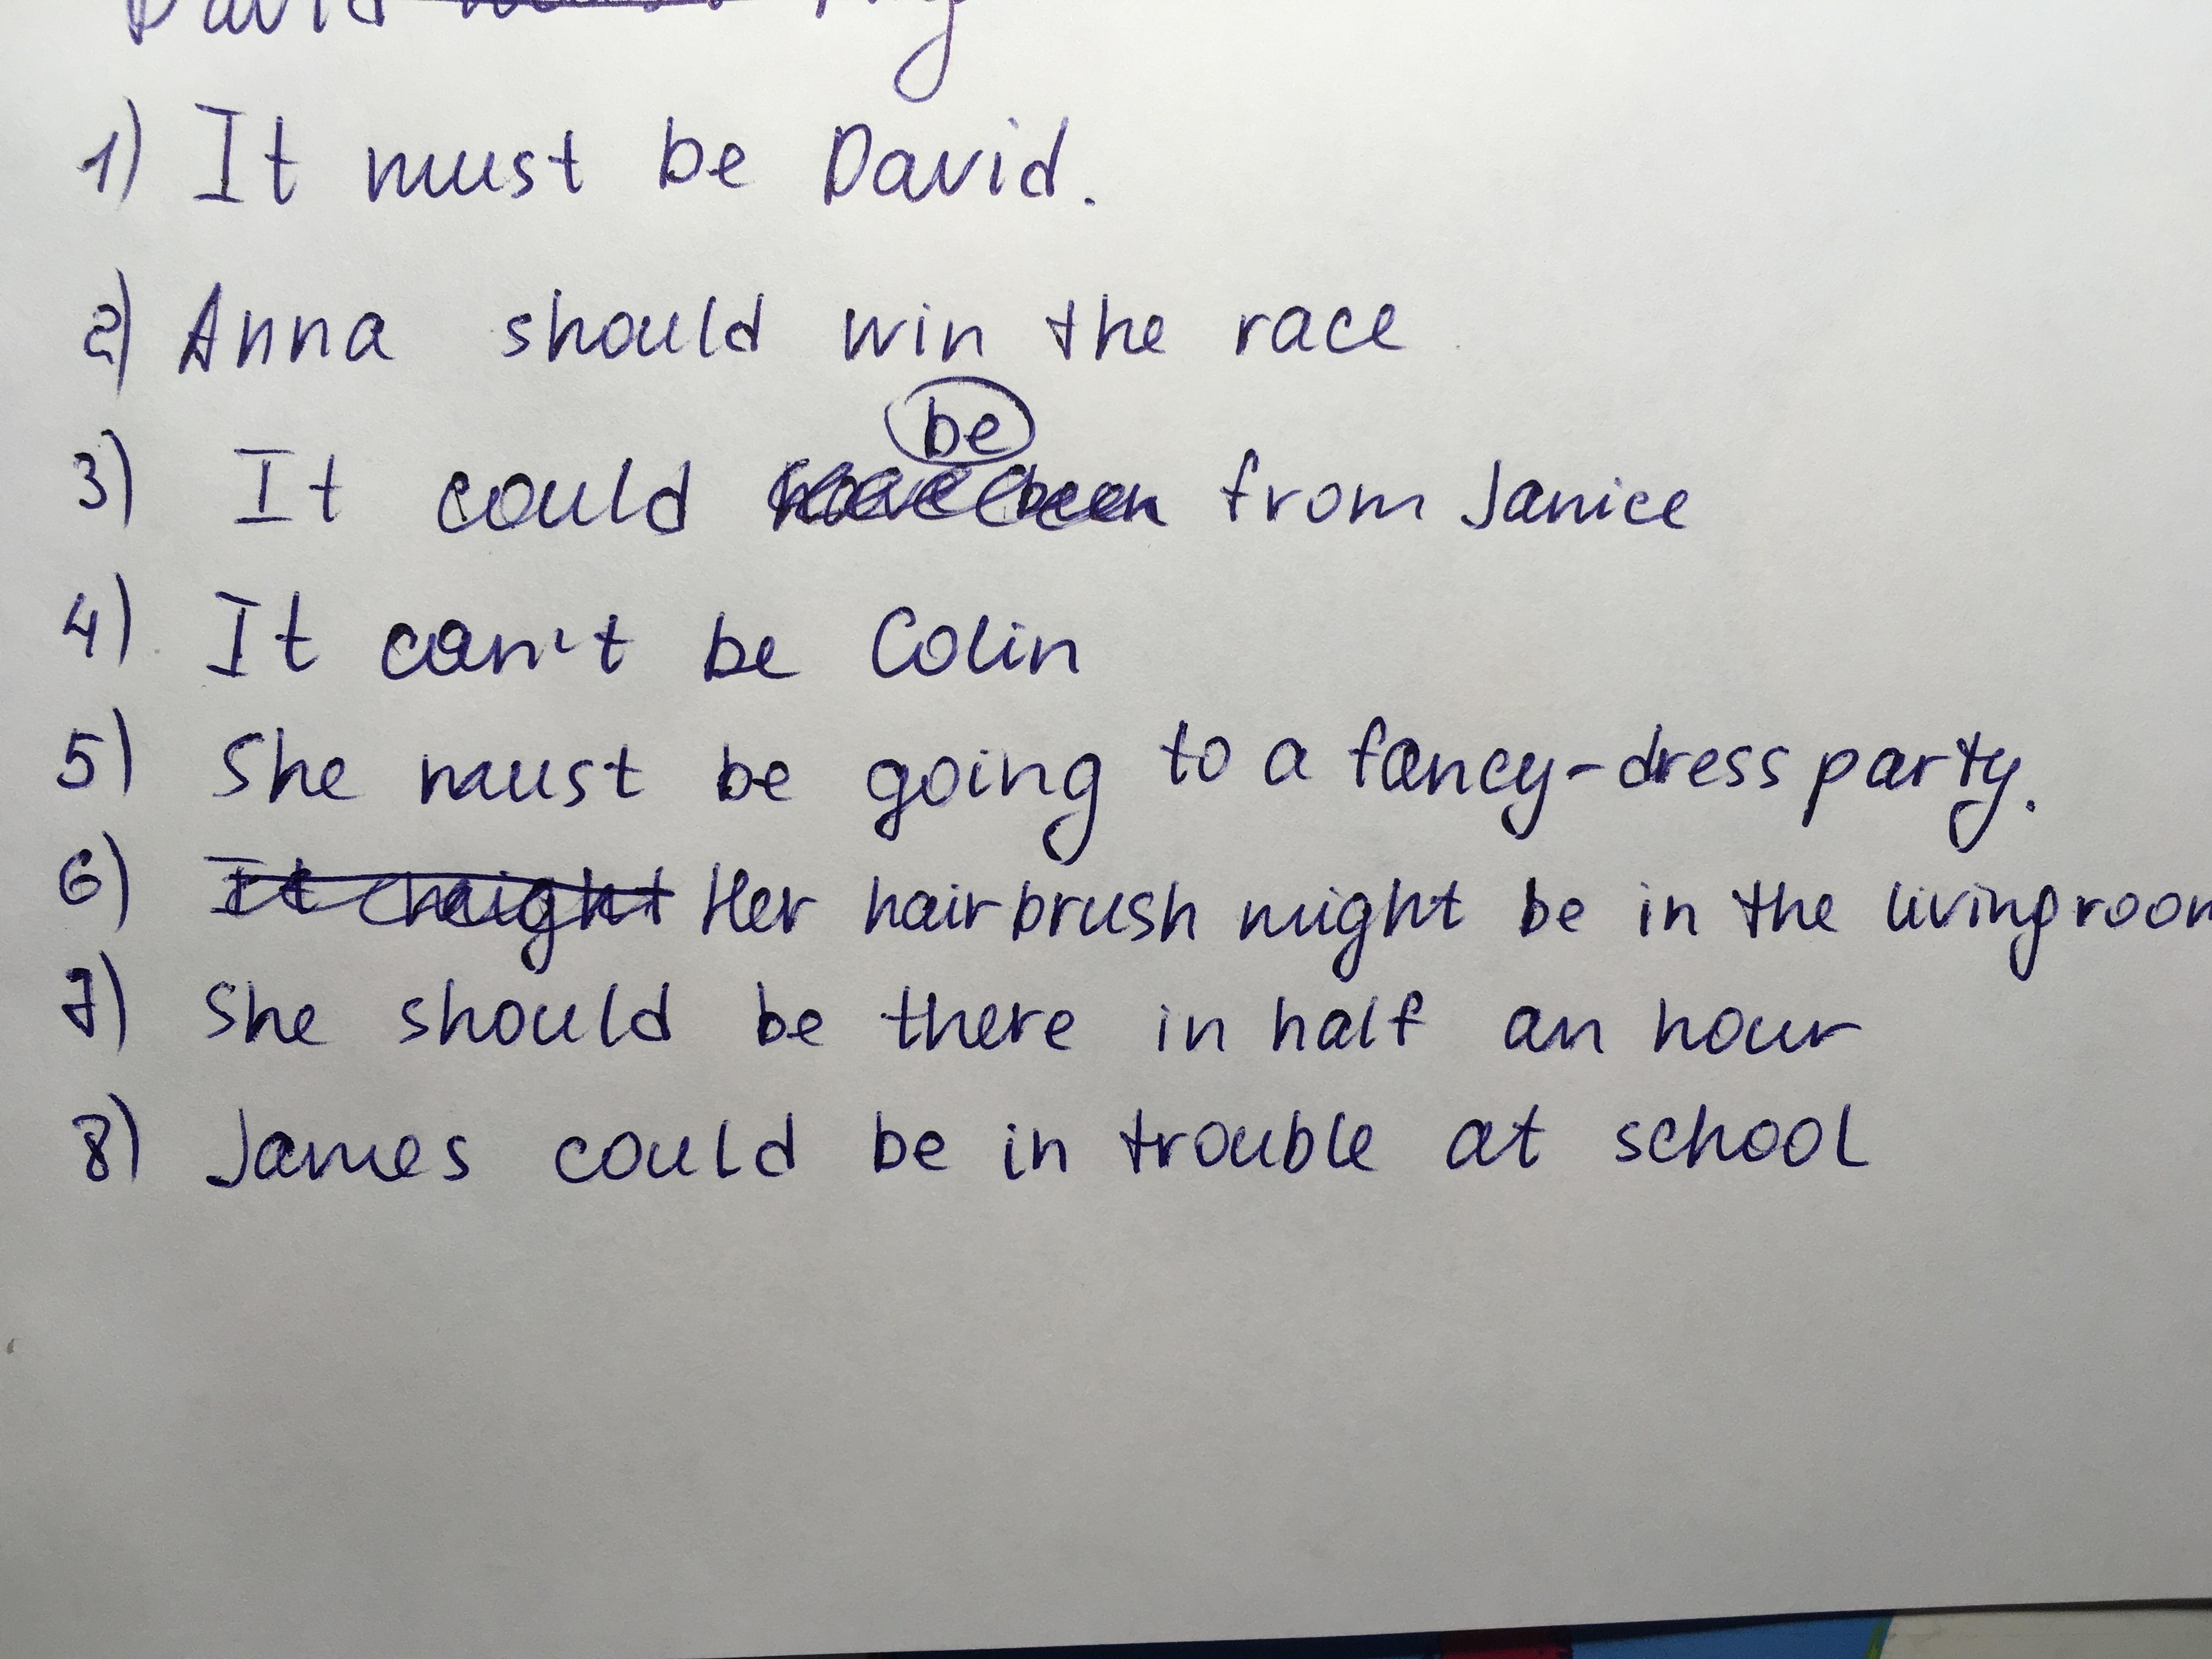 David
1) It must be David.
2) Anna should win the race
be
3) It could have been from Janice
4) It can't be Colin
5) She must be going to a fancy-dress party.
6) It might Her hairbrush might be in the living room
7) She should be there in half an hour
8) James could be in trouble at school